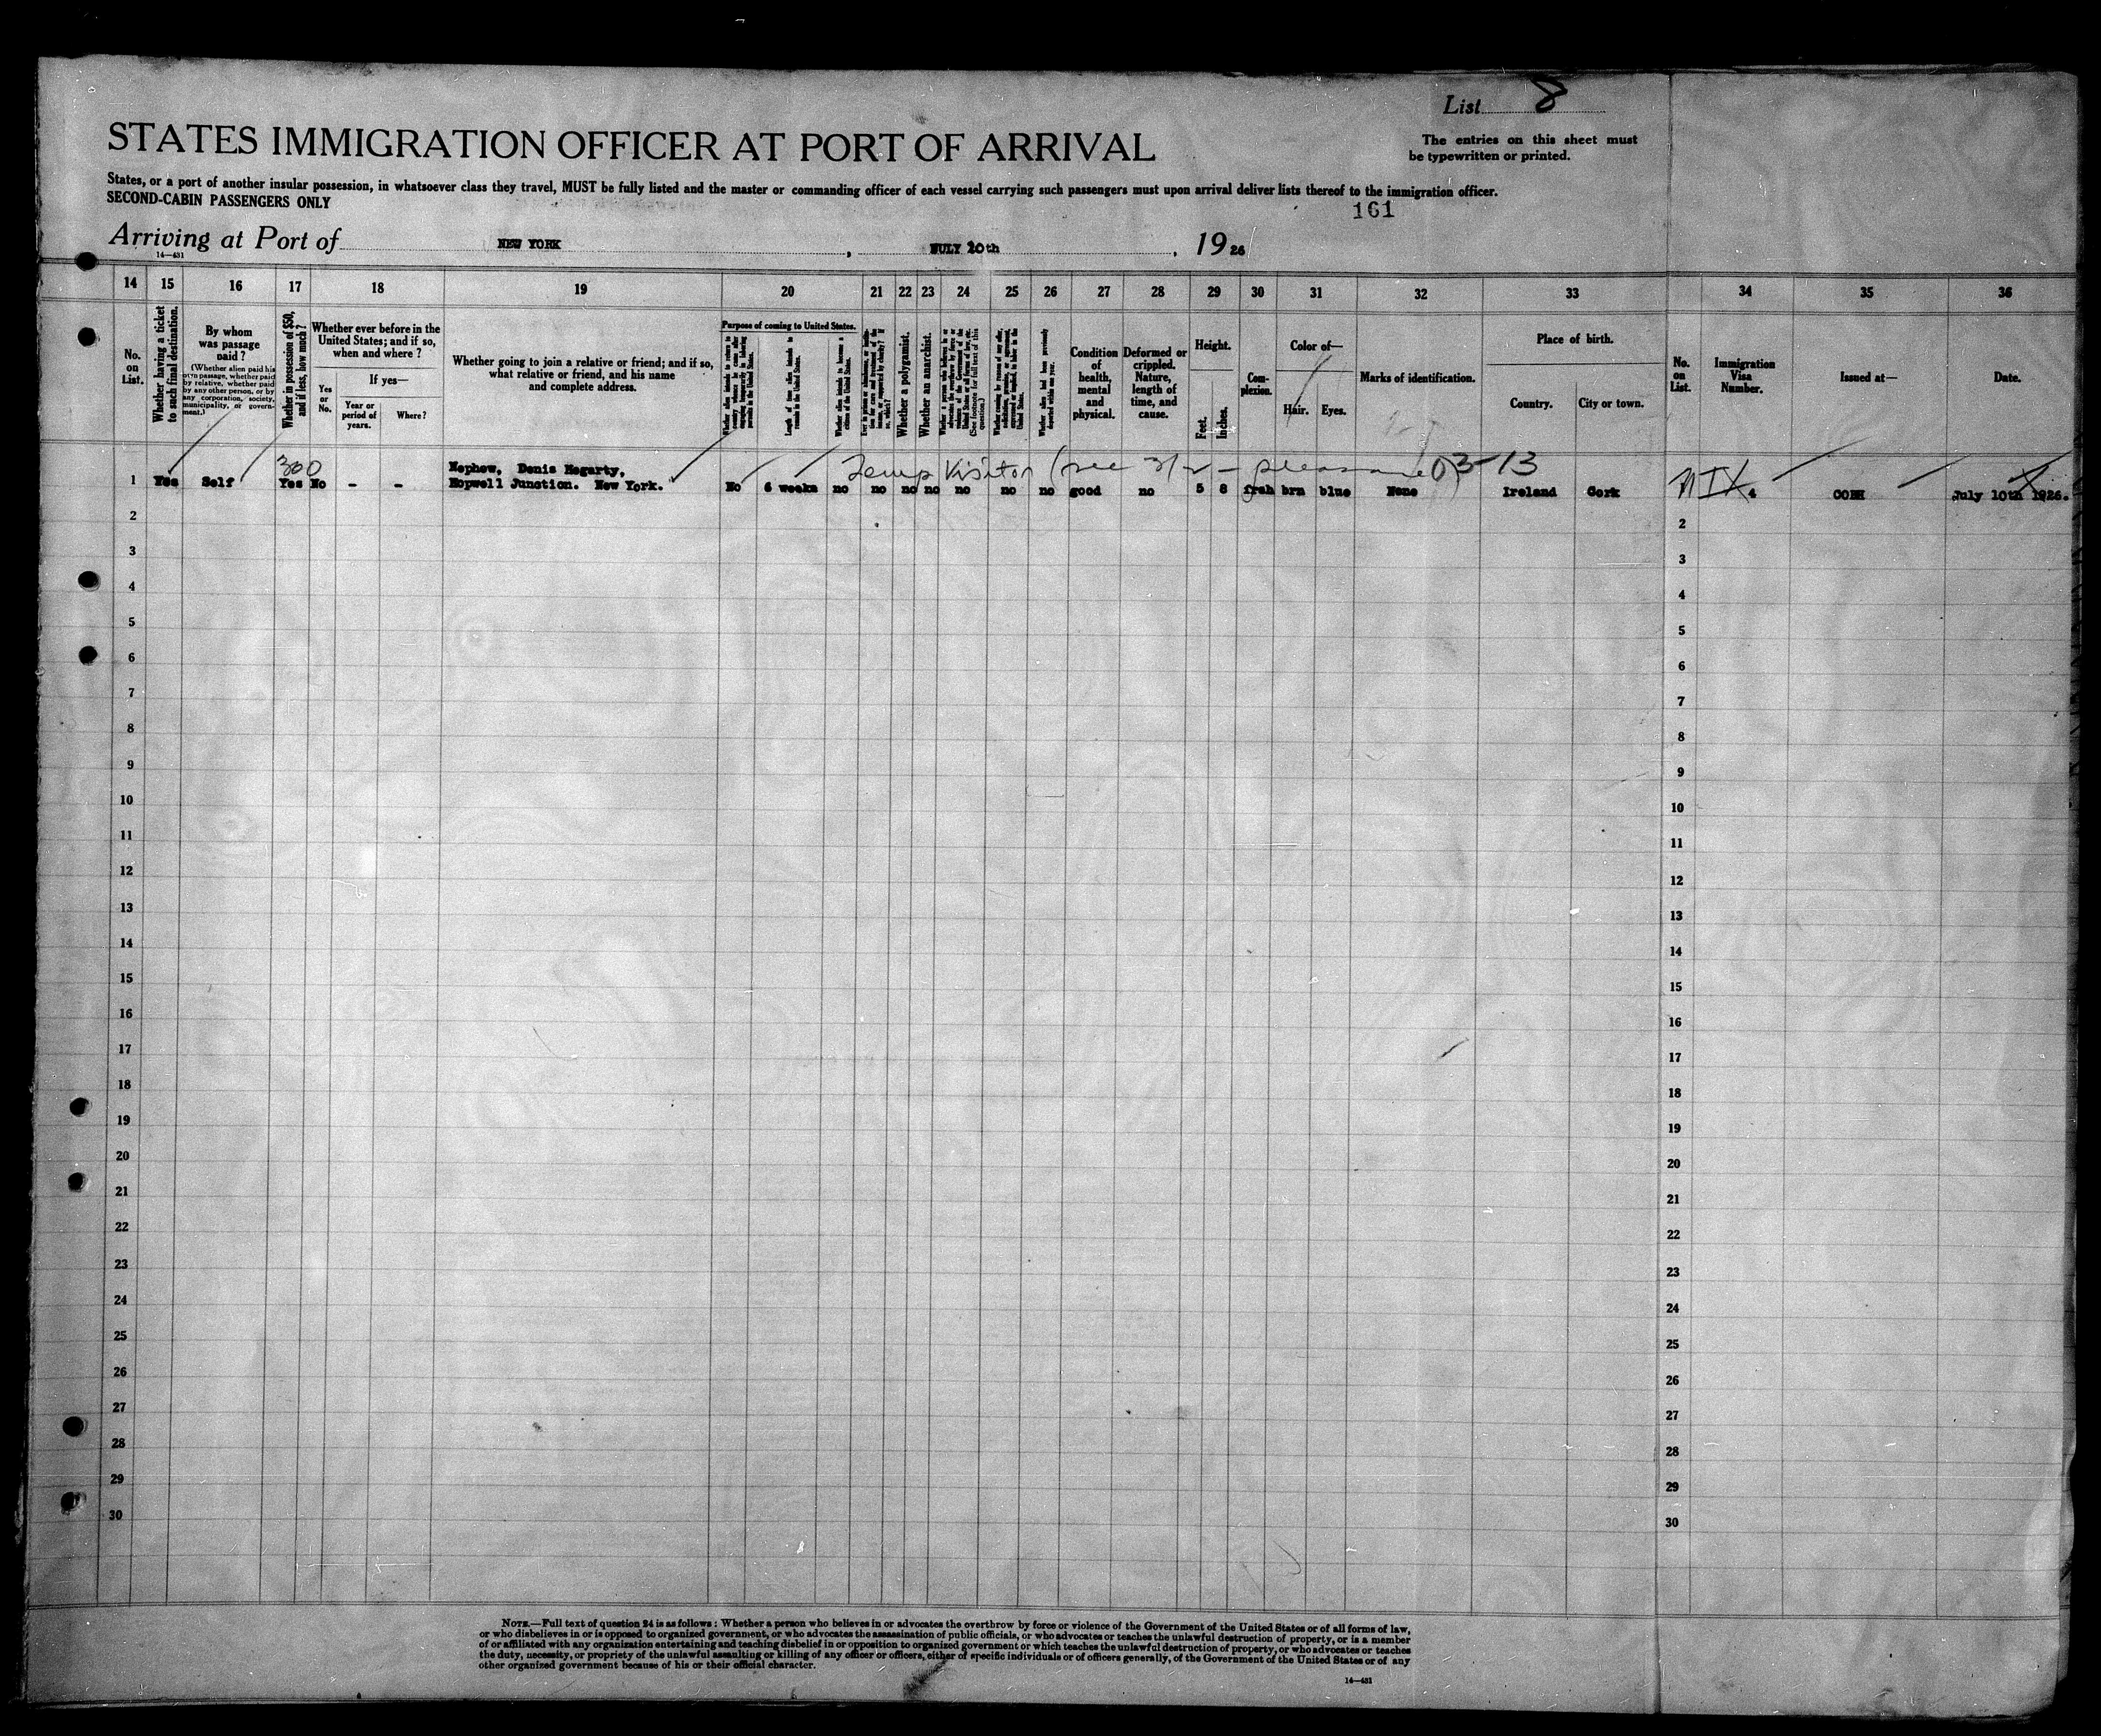 List 8
STATES IMMIGRATION OFFICER AT PORT OF ARRIVAL
The entries on this sheet must
be typewritten or printed.
States, or a port of another insular possession, in whatsoever class they travel, MUST be fully listed and the master or commanding officer of each vessel carrying such passengers must upon arrival deliver lists thereof to the immigration officer.
SECOND-CABIN PASSENGERS ONLY
161
Arriving at Port of NEW YORK, JULY 20th, 1926
14—431
14 15 16 17 18 19 20 21 22 23 24 25 26 27 28 29 30 31 32 33 34 35 36
No. on List.
Whether having a ticket to such final destination.
By whom was passage paid?
(Whether alien paid his own passage, whether paid by relative, whether paid by any other person, or by any corporation, society, municipality, or government.)
Whether in possession of $50, and if less, how much?
Whether ever before in the United States; and if so, when and where?
Yes or No.
If yes—
Year or period of years.
Where?
Whether going to join a relative or friend; and if so, what relative or friend, and his name and complete address.
Purpose of coming to United States.
Whether alien intends to return to country whence he came after engaging temporarily in laboring pursuits in the United States.
Length of time alien intends to remain in the United States.
Whether alien intends to become a citizen of the United States.
Ever in prison or almshouse, or institution for care and treatment of the insane, or supported by charity? If so, which?
Whether a polygamist.
Whether an anarchist.
Whether a person who believes in or advocates the overthrow by force or violence of the Government of the United States or all forms of law, etc. (See footnote for full text of this question.)
Whether coming by reason of any offer, solicitation, promise, or agreement, expressed or implied, to labor in the United States.
Whether alien had been previously deported within one year.
Condition of health, mental and physical.
Deformed or crippled. Nature, length of time, and cause.
Height.
Feet. Inches.
Complexion.
Color of—
Hair. Eyes.
Marks of identification.
Place of birth.
Country. City or town.
No. on List.
Immigration Visa Number.
Issued at—
Date.
300 Temp Visitor 3-13
Nephew, Denis Hegarty,
1 Yes Self Yes No - - Hopwell Junction. New York. No 6 weeks no no no no no no no good no 5 8 frsh brn blue None Ireland Cork 4 COBH July 10th 1926.
2 2
3 3
4 4
5 5
6 6
7 7
8 8
9 9
10 10
11 11
12 12
13 13
14 14
15 15
16 16
17 17
18 18
19 19
20 20
21 21
22 22
23 23
24 24
25 25
26 26
27 27
28 28
29 29
30 30
NOTE.—Full text of question 24 is as follows: Whether a person who believes in or advocates the overthrow by force or violence of the Government of the United States or of all forms of law,
or who disbelieves in or is opposed to organized government, or who advocates the assassination of public officials, or who advocates or teaches the unlawful destruction of property, or is a member
of or affiliated with any organization entertaining and teaching disbelief in or opposition to organized government or which teaches the unlawful destruction of property, or who advocates or teaches
the duty, necessity, or propriety of the unlawful assaulting or killing of any officer or officers, either of specific individuals or of officers generally, of the Government of the United States or of any
other organized government because of his or their official character.
14—431